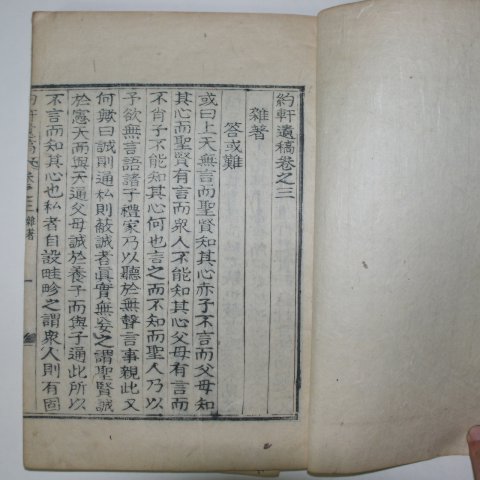 約軒遺稿卷之三
雜著
答或難
或曰上天無言而聖賢知其心赤子不言而父母知
其心而聖賢有言而衆人不能知其心父母有言而
不肖子不能知其心何也言之而不知而聖人乃以
予欲無言語諸子禮家乃以聽於無聲言事親此又
何歟曰誠則通私則蔽誠者眞實無妄之謂聖賢誠
於憲天而與天通父母誠於養子而與子通此所以
不言而知其心也私者自設畦畛之謂衆人則有固
約軒遺稿 卷之三 雜著 一